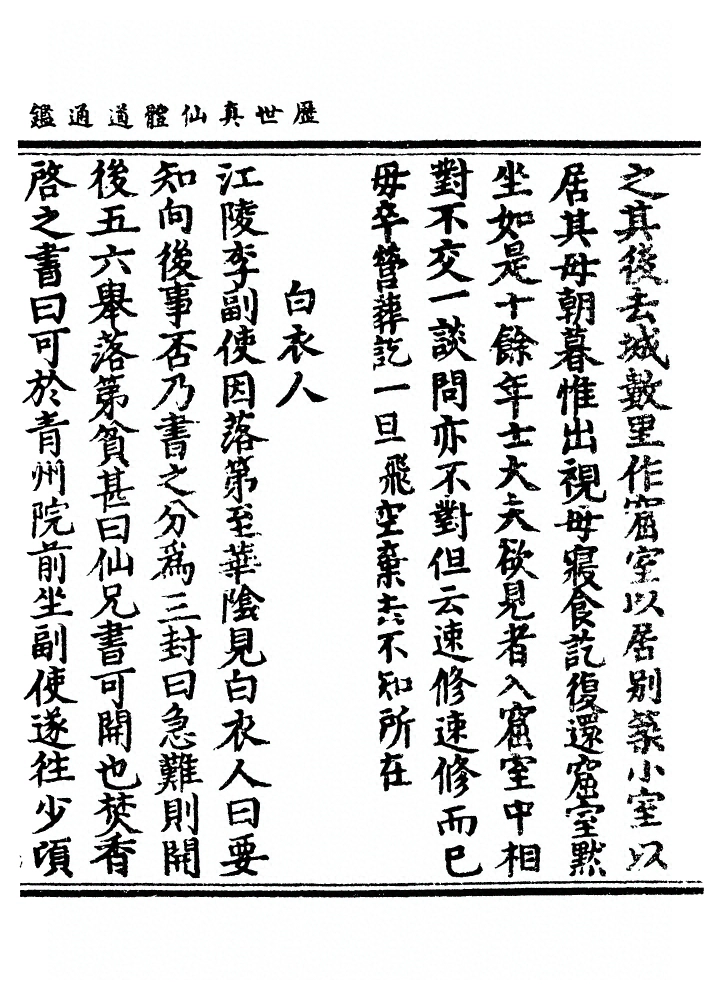 歷世真仙體道通鑑
之其後去城數里作窟室以居別築小室以
居其母朝暮惟出視母寢食訖復還窟室默
坐如是十餘年士大夫欲見者入窟室中相
對不交一談問亦不對但云速修速修而已
母卒營葬訖一旦飛空棄去不知所在
白衣人
江陵李副使因落第至華陰見白衣人曰要
知向後事否乃書之分為三封曰急難則開
後五六舉落第貧甚曰仙兄書可開也焚香
啓之書曰可於青州院前坐副使遂往少頃